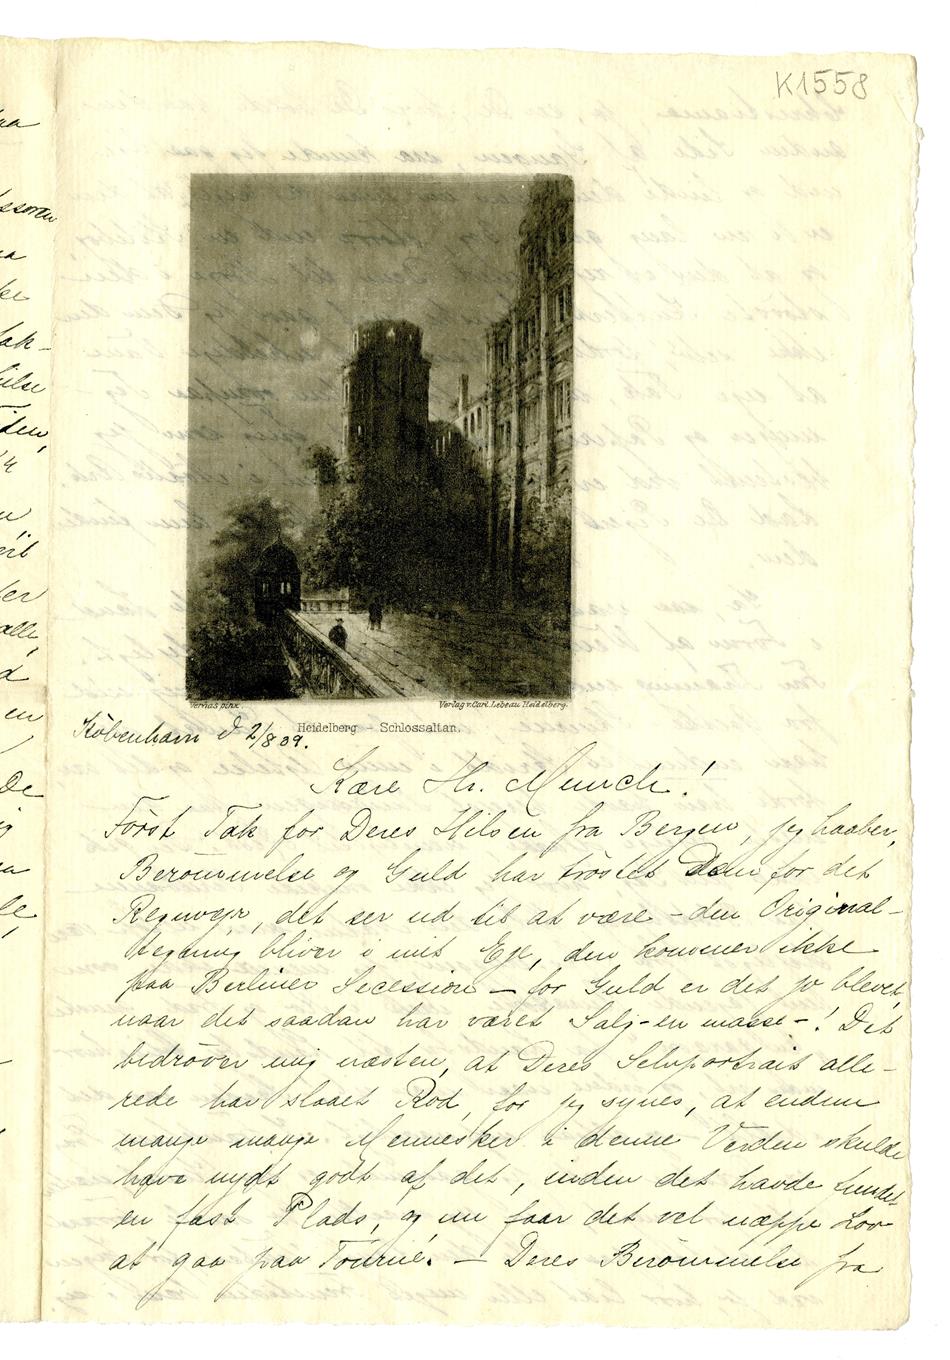 K1558
Vernas pinx.
Verlag v. Carl Lebeau Heidelberg.
Heidelberg – Schlossaltan.
Köbenhavn d 2/8 09.
Kære Hr. Munch!
Först Tak for Deres Hilsen fra Bergen, jeg haaber,
Berömmelse og Guld har tröstet Dem for det
Regnvejr, det ser ud til at være – den Original-
tegning bliver i mit Eje, den kommer ikke
paa Berliner Secession – for Guld er det jo blevet,
naar det saadan har været Salg – en masse –! Det
bedröver mig næsten, at Deres Selvportrait alle-
rede har slaaet Rod, for jeg synes, at endnu
mange mange Mennesker i denne Verden skulde
have nydt godt af det, inden det havde fundet
en fast Plads, og nu faar det vel næppe Lov
at gaa paa Tourné. – Deres Berömmelse fra